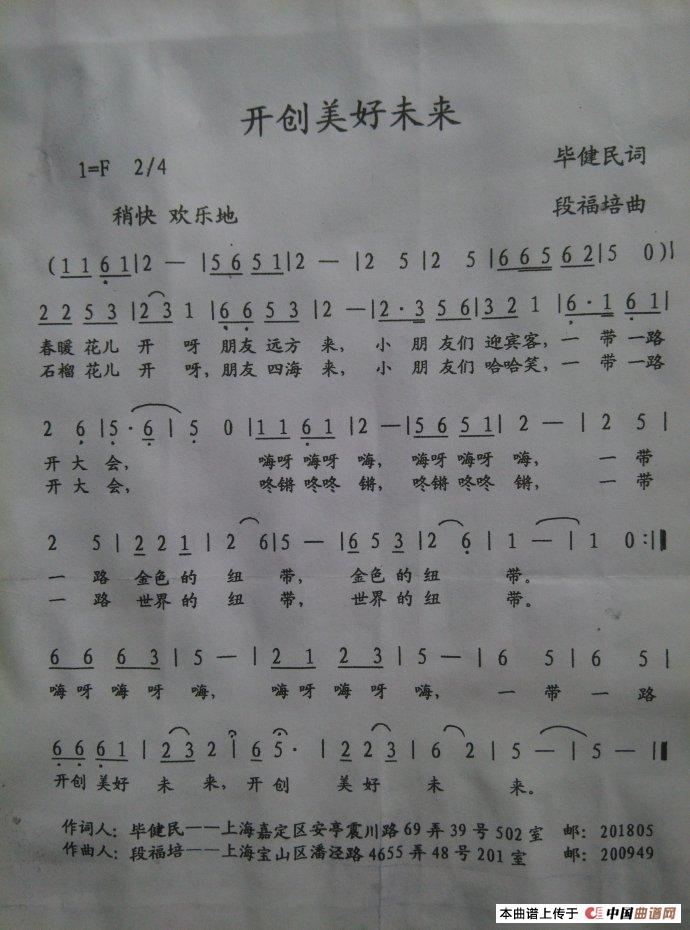 开创美好未来
1=F 2/4
毕健民词
稍快 欢乐地
段福培曲
(1 1 6 1|2 —|5 6 5 1|2 —|2 5|2 5|6 6 5 6 2|5 0)|
2 2 5 3|2 3 1|6 6 5 3|2 —|2·3 5 6|3 2 1|6·1 6 1|
春暖 花儿 开 呀 朋友 远方 来, 小 朋 友们 迎宾客, 一 带 一路
石榴 花儿 开 呀, 朋友 四海 来, 小 朋 友们 哈哈笑, 一 带 一路
2 6|5·6|5 0|1 1 6 1|2 —|5 6 5 1|2 —|2 5|
开 大 会, 嗨呀 嗨呀 嗨, 嗨呀 嗨呀 嗨, 一 带
开 大 会, 咚锵 咚咚 锵, 咚锵 咚咚 锵, 一 带
2 5|2 2 1|2 6|5 —|6 5 3|2 6|1 —|1 0:‖
一 路 金色 的 纽 带, 金色 的 纽 带。
一 路 世界 的 纽 带, 世界 的 纽 带。
6 6 6 3|5 —|2 1 2 3|5 —|6 5|6 5|
嗨 呀 嗨 呀 嗨, 嗨 呀 嗨 呀 嗨, 一 带 一 路
6 6 6 1|2 3 2|6 5·|2 2 3|6 2|5 —|5 —‖
开创 美好 未 来, 开 创 美 好 未 来。
作词人: 毕健民——上海嘉定区安亭震川路69弄39号502室 邮: 201805
作曲人: 段福培——上海宝山区潘泾路4655弄48号201室 邮: 200949
本曲谱上传于 中国曲谱网